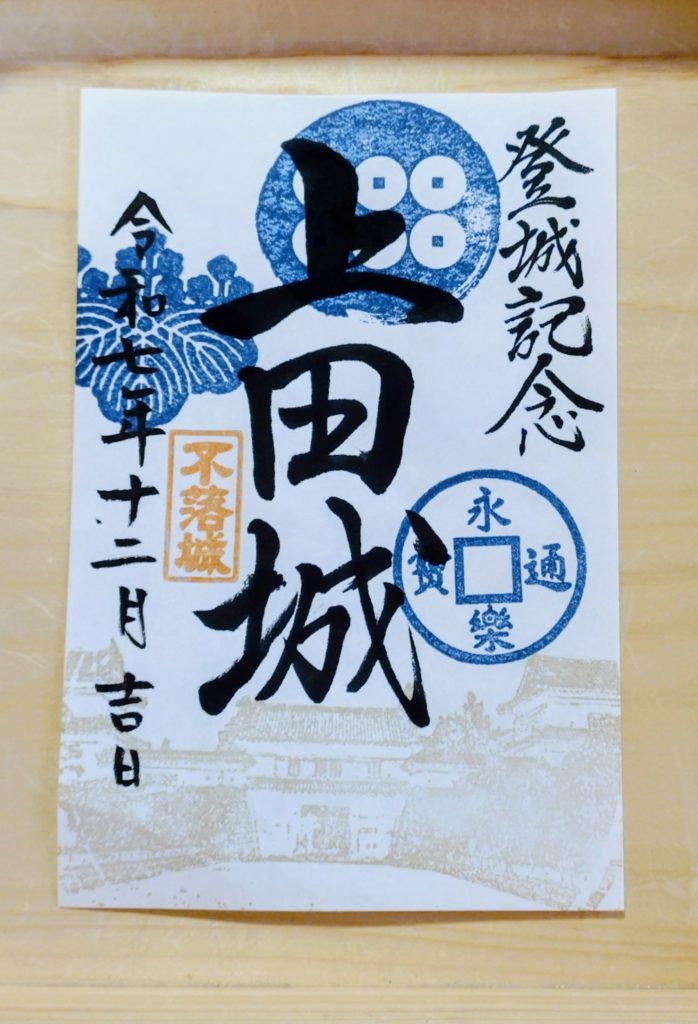 登城記念
上田城
永樂通寳
不落城
令和七年十二月吉日